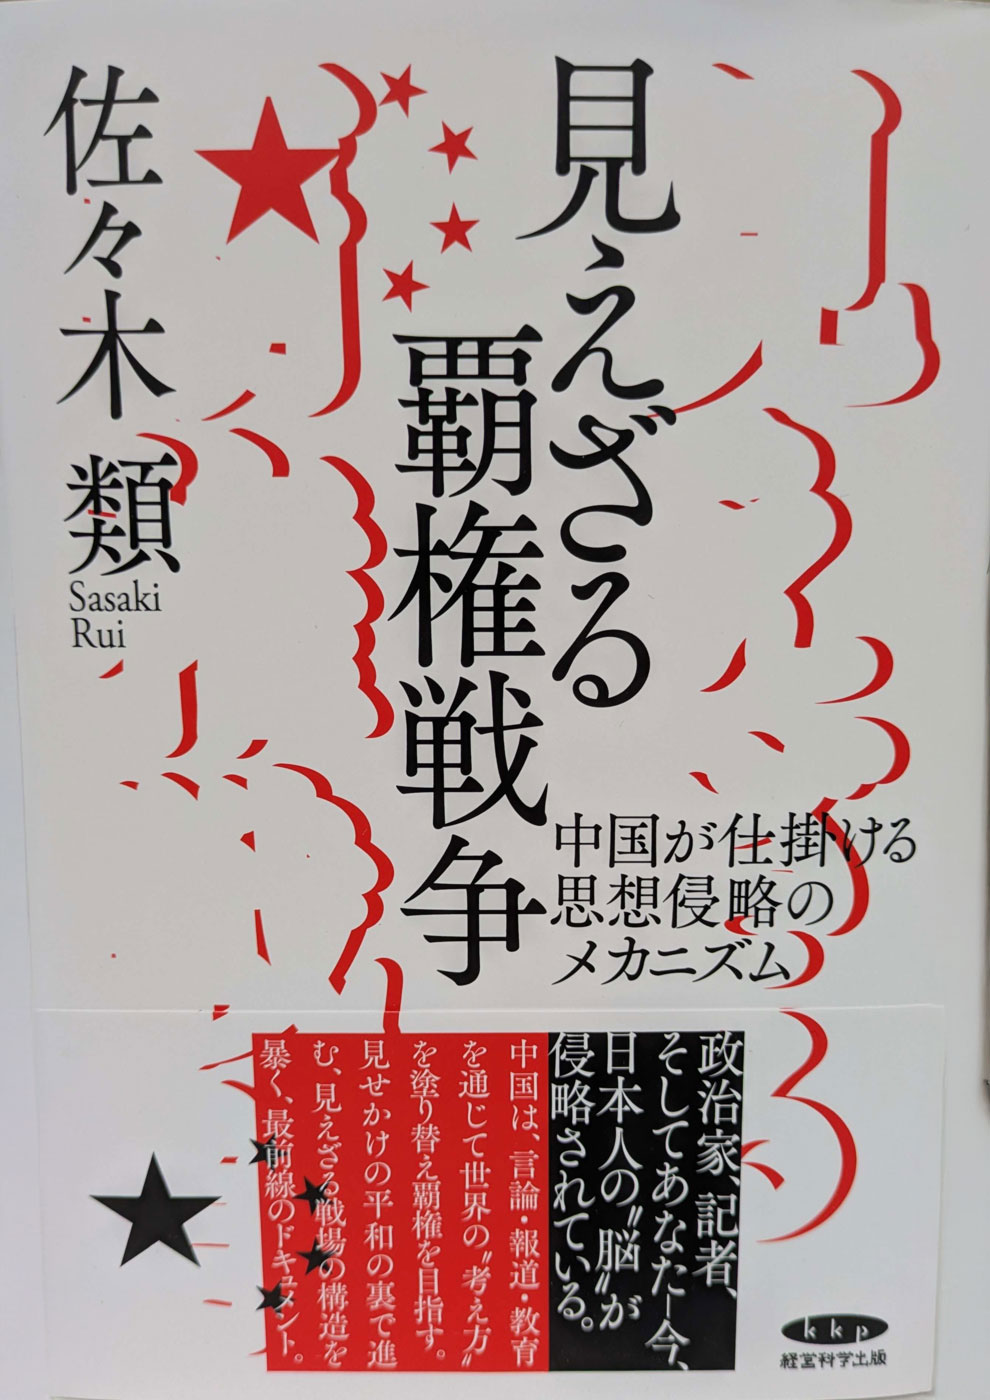 見えざる
覇権戦争
中国が仕掛ける
思想侵略の
メカニズム
佐々木 類
Sasaki
Rui
政治家、記者、
そしてあなた—今、
日本人の〝脳〟が
侵略されている。
中国は、言論・報道・教育
を通じて世界の〝考え方〟
を塗り替え覇権を目指す。
見せかけの平和の裏で進
む、見えざる戦場の構造を
暴く、最前線のドキュメント。
kkp
経営科学出版